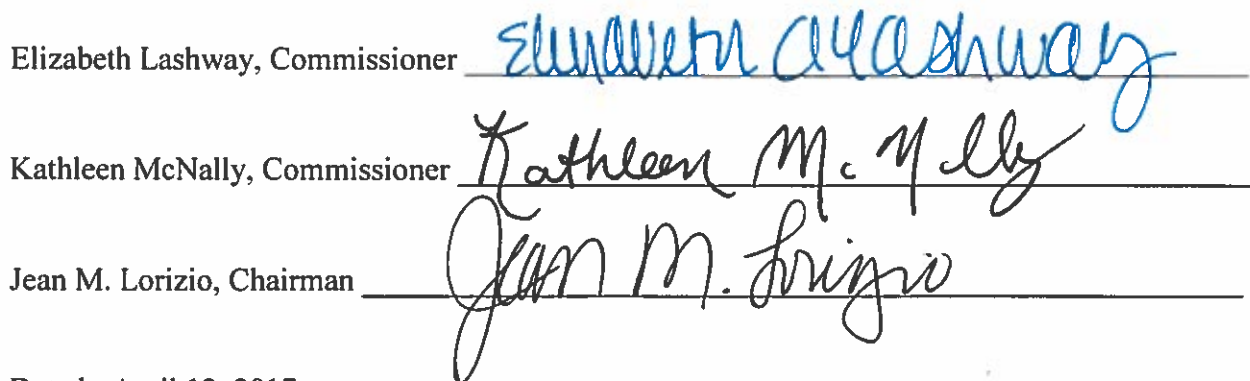 Elizabeth Lashway, Commissioner Elizabeth A Lashway
Kathleen McNally, Commissioner Kathleen McNally
Jean M. Lorizio, Chairman Jean M. Lorizio